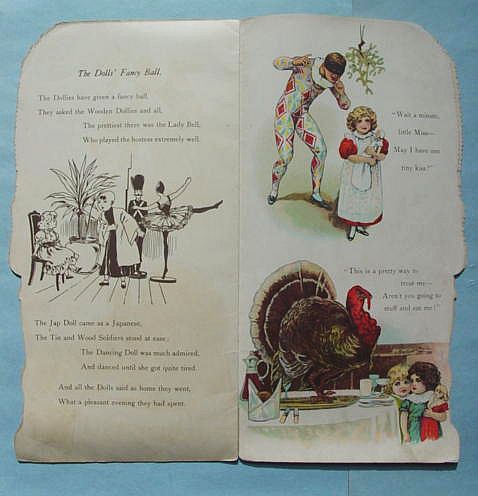 The Dolls' Fancy Ball.
The Dollies have given a fancy ball,
They asked the Wooden Dollies and all,
The prettiest there was the Lady Bell,
Who played the hostess extremely well.
The Jap Doll came as a Japanese,
The Tin and Wood Soldiers stood at ease;
The Dancing Doll was much admired,
And danced until she got quite tired.
And all the Dolls said as home they went,
What a pleasant evening they had spent.
"Wait a minute,
little Miss—
May I have one
tiny kiss?"
"This is a pretty way to
treat me—
Aren't you going to
stuff and eat me!"